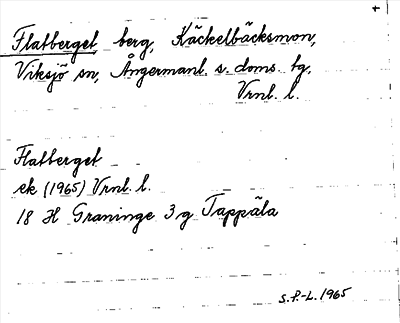 Flatberget berg, Käckelbäcksmon,
Viksjö sn, Ångermanl. s. doms. tg,
Vrnl. l.
Flatberget
ek (1965) Vrnl. l.
18 H Graninge 3 g Tappäla
S.P.-L. 1965